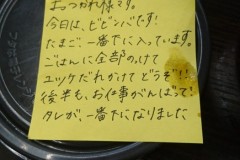 おつかれ様です。
今日は、ビビンバです!
たまご、一番下に入っています。
ごはんに全部のっけて
ユッケだれかけてどうぞ!!
後半も、お仕事がんばって!
タレが、一番下になりました